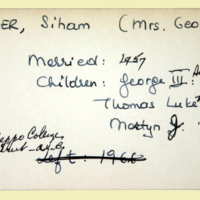 ER, Siham (Mrs. Geo
Married: 1957
Children: George III:
Thomas Luke
Martyn J.
eppo College
Left: 1966